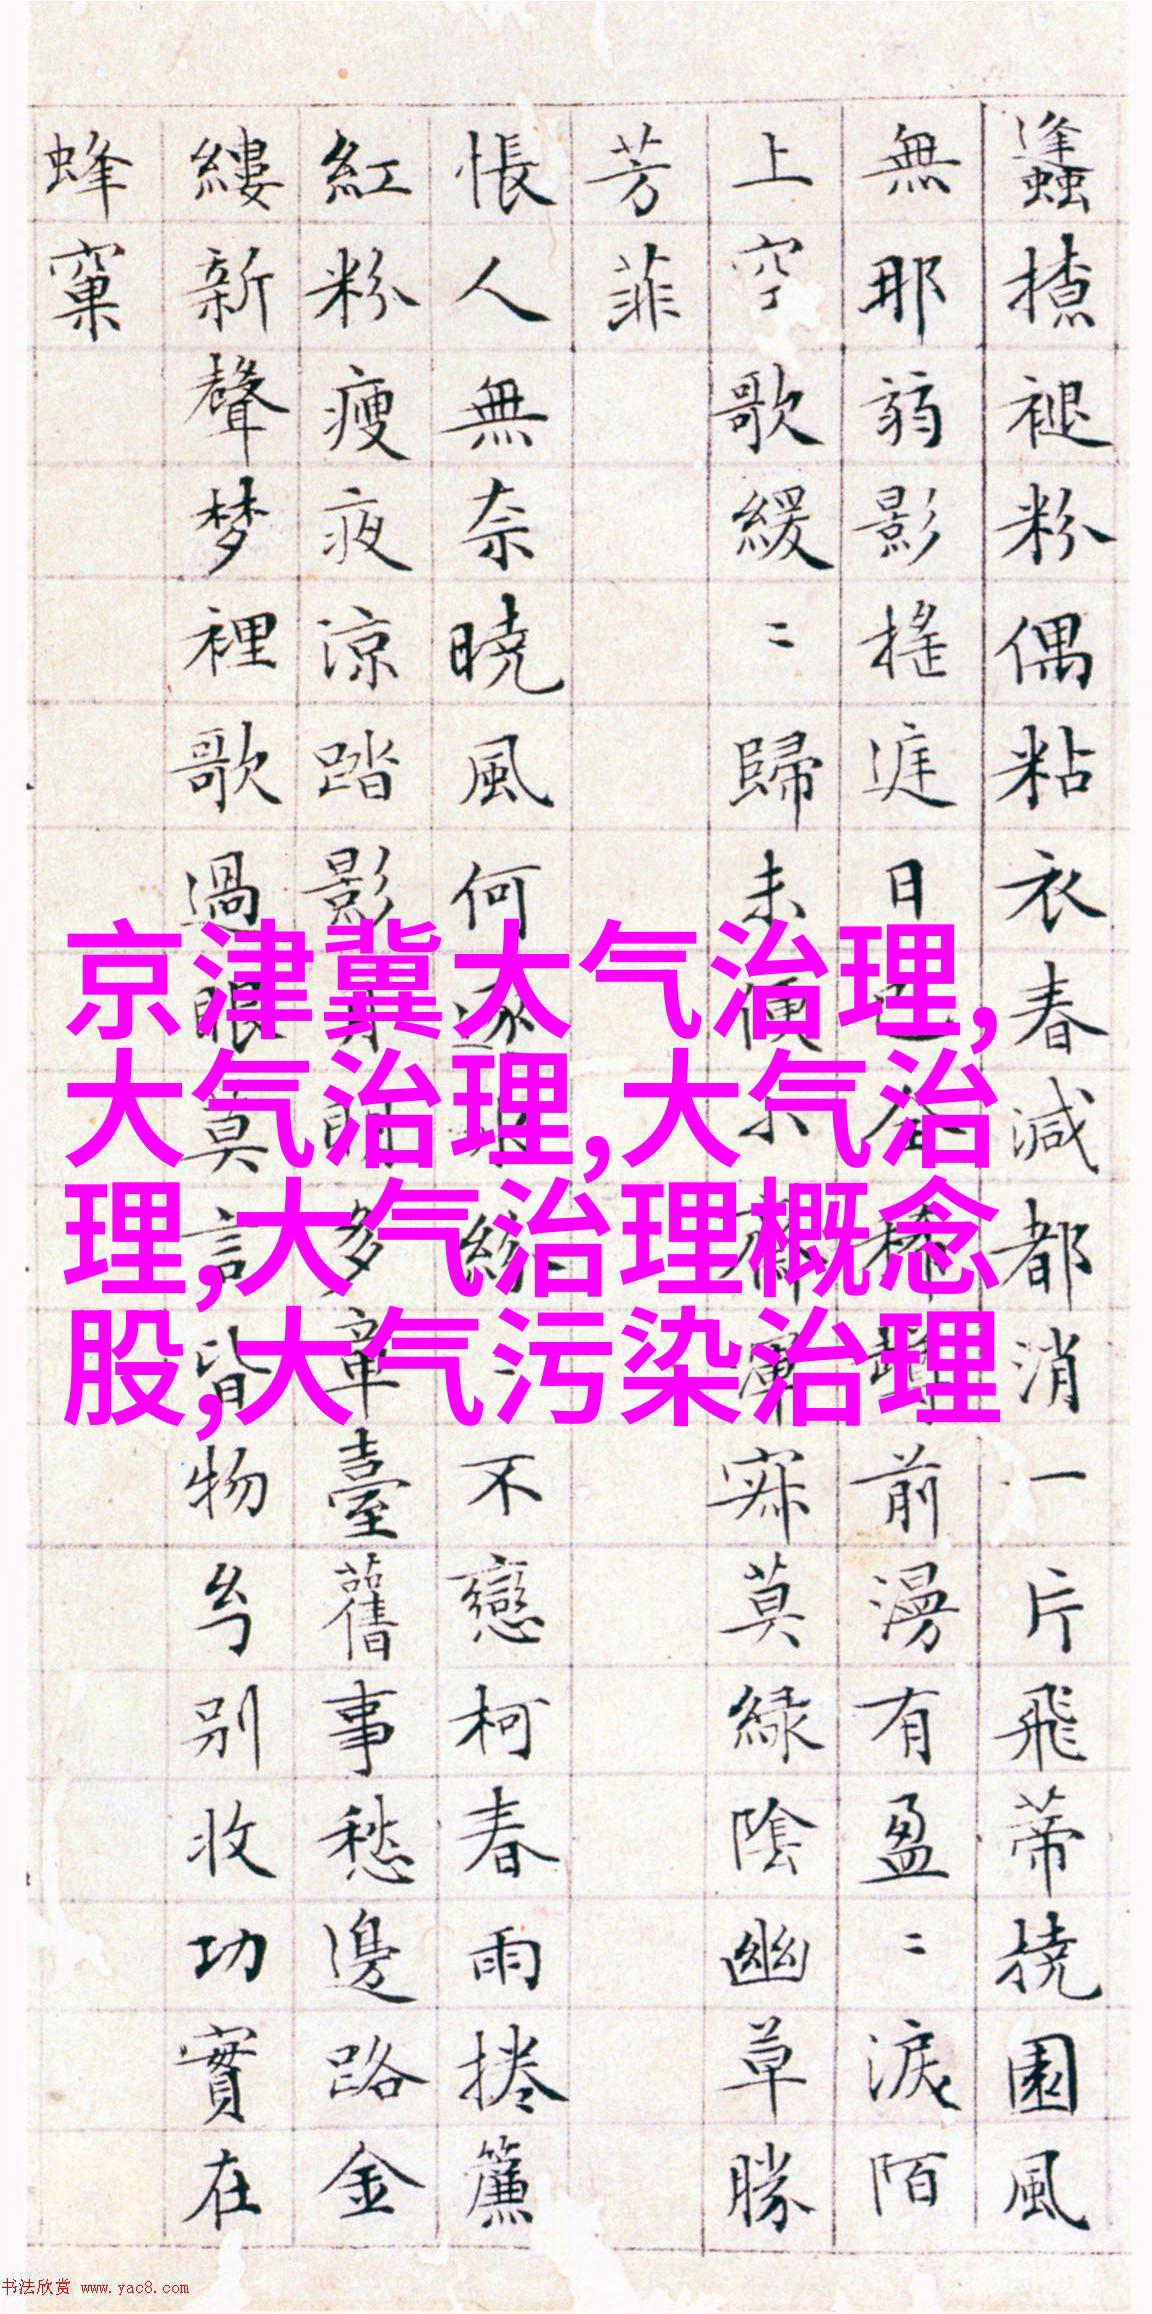 蠭褪粉偶粘衣春減都消一片飛蒂撓園風
無那弱影搖日前漫有盈〻淚陌
上空歌緩〻歸未便寂莫綠陰幽草勝
芳菲
悵人無奈曉風何逐不戀柯春雨捲簾
紅粉瘦夜涼踏影多章臺舊事愁邊路金
縷新聲梦裡歌過眼莫言皆物别收功實在
蜂窠
京津冀大气治理,
大气治理,大气治
理,大气治理概念
股,大气污染治理
书法欣赏 www.yac8.com